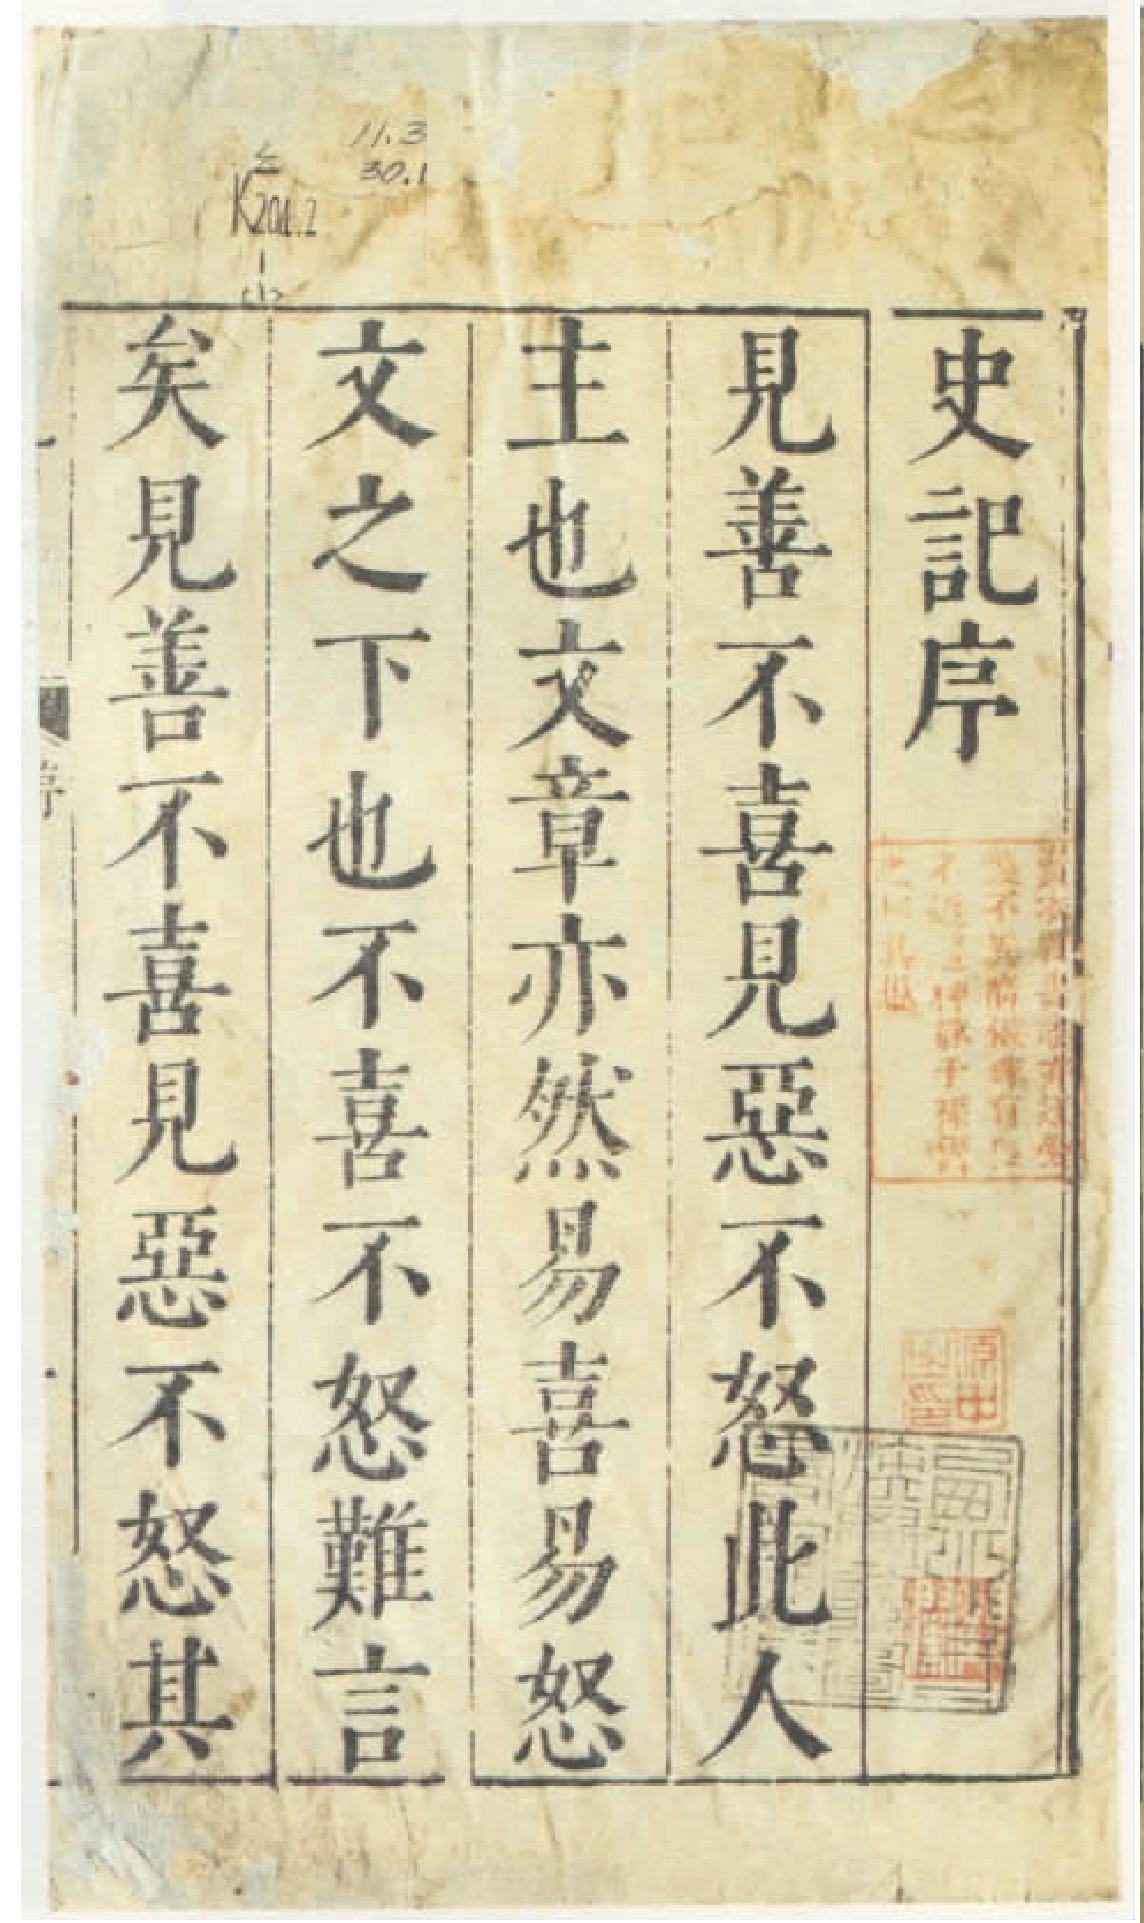 史記序
見善不喜見惡不怒此人
主也文章亦然易喜易怒
文之下也不喜不怒難言
矣見善不喜見惡不怒其
序
11.3
30.1
K204.2